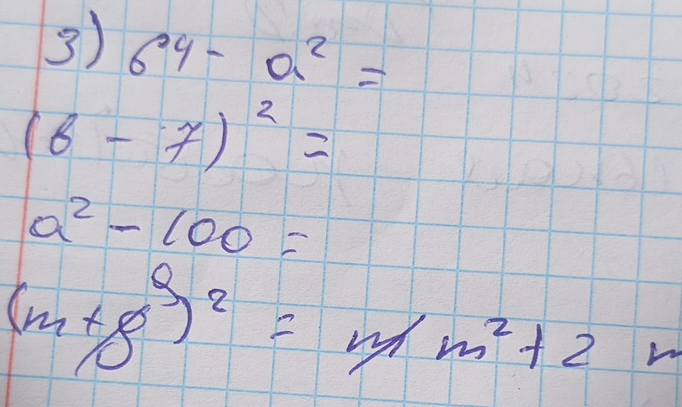 3) 64 - a² =
(b - 7)² =
a² - 100 =
(m + 9)² = m² + 2 m